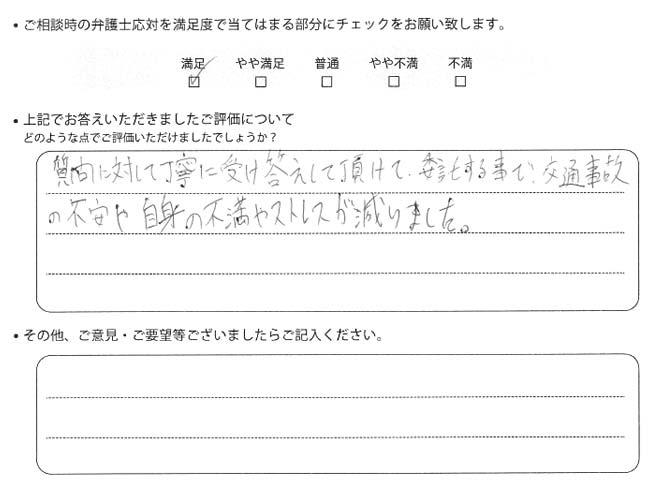 • ご相談時の弁護士応対を満足度で当てはまる部分にチェックをお願い致します。
満足 やや満足 普通 やや不満 不満
☑ □ □ □ □
• 上記でお答えいただきましたご評価について
どのような点でご評価いただけましたでしょうか？
質向に対して丁寧に受け答えして頂けて、委託する事で、交通事故
の不安や自身の不満やストレスが減りました。
• その他、ご意見・ご要望等ございましたらご記入ください。